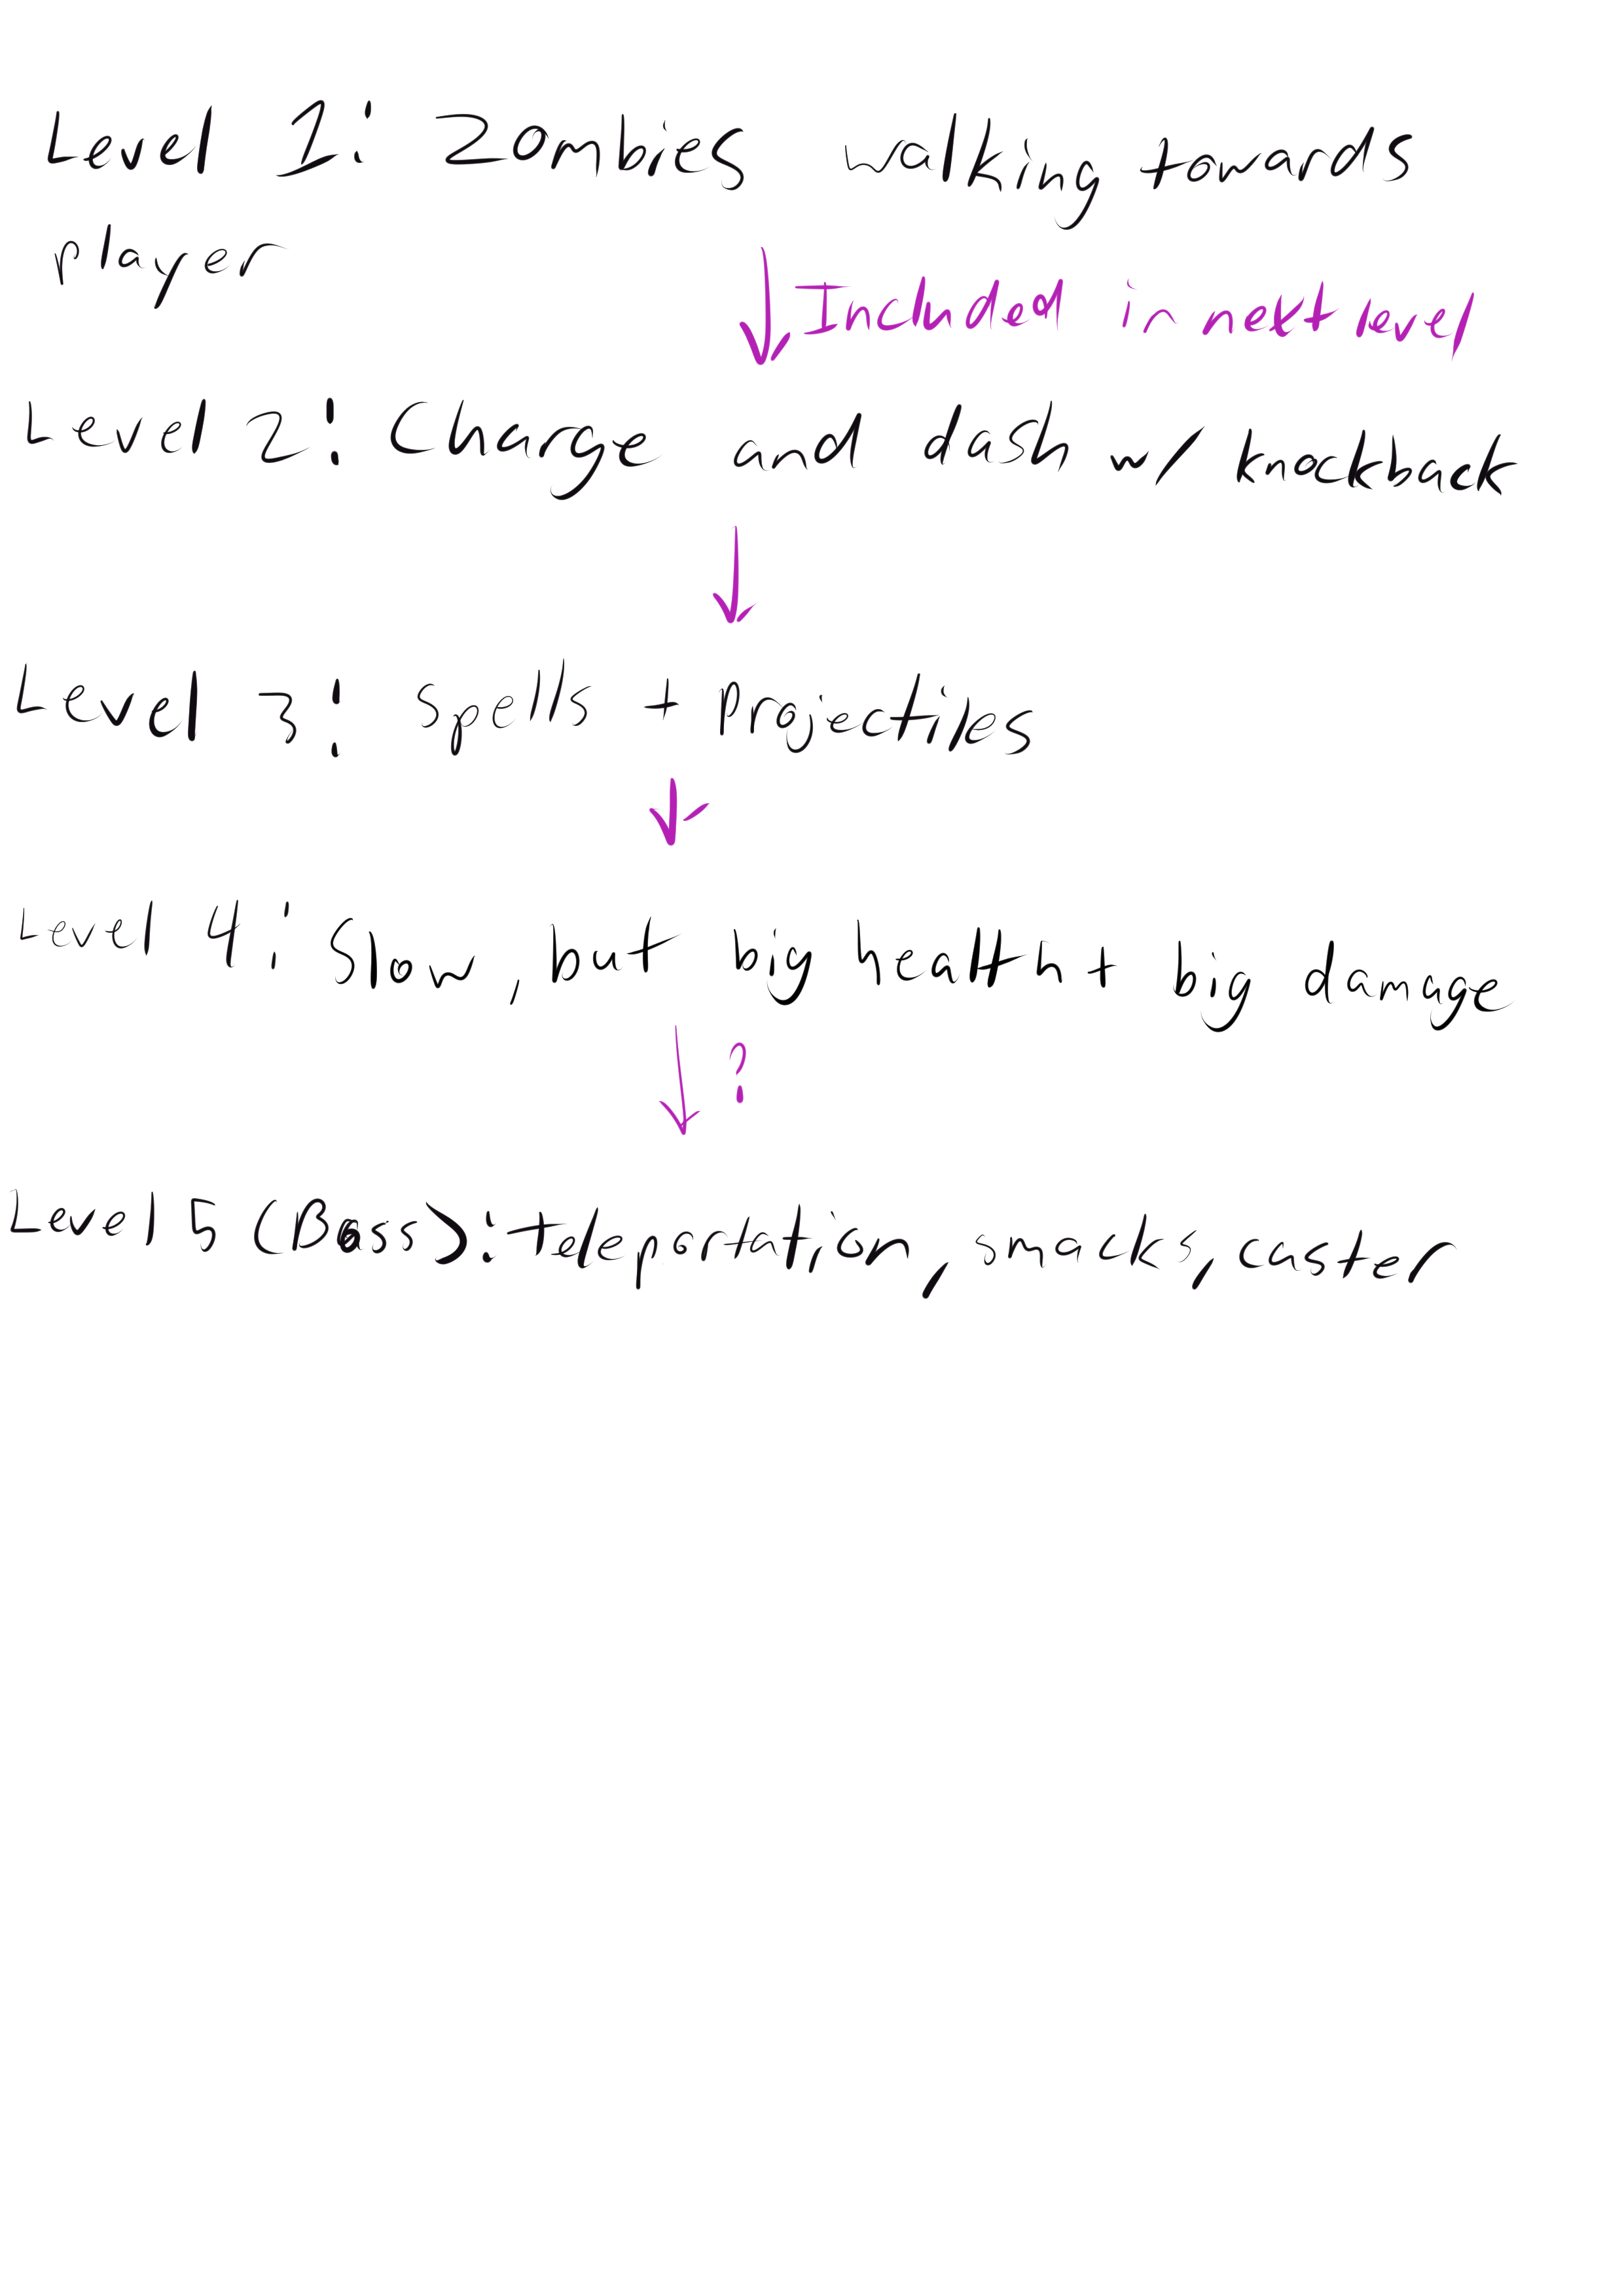 Level 1: Zombies walking towards
player
Included in next level
Level 2: Charge and dash w/ knockback
Level 3: Spells + Projectiles
Level 4: Slow, but big health + big damage
?
Level 5 (Boss): teleportation, smacks, caster